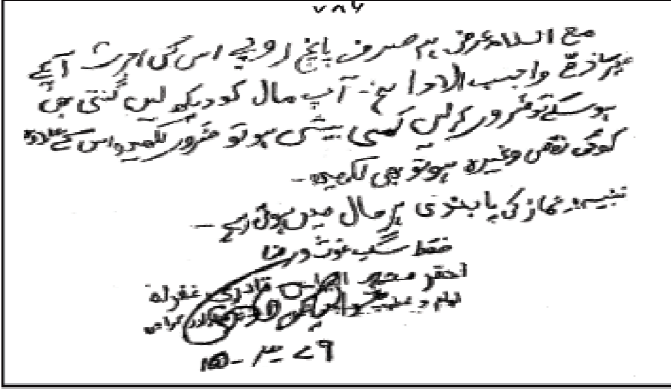 ۷۸۶
مع السلام عرض ہے صرف پانچ روپے اس کی اجرت آپ کے
ذمے واجب الادا ہے۔ آپ مال کو دیکھ لیں گنتی بھی
ہو سکے تو ضرور کر لیں کمی بیشی ہو تو ضرور لکھیں اس کے علاوہ
کوئی نقص وغیرہ ہو تو بھی لکھیں۔
تنبیہ: نماز کی پابندی ہر حال میں ہوتی رہے۔
فقط سگ غوث و رضا
احقر محمد الیاس قادری غفرلہ
امام و